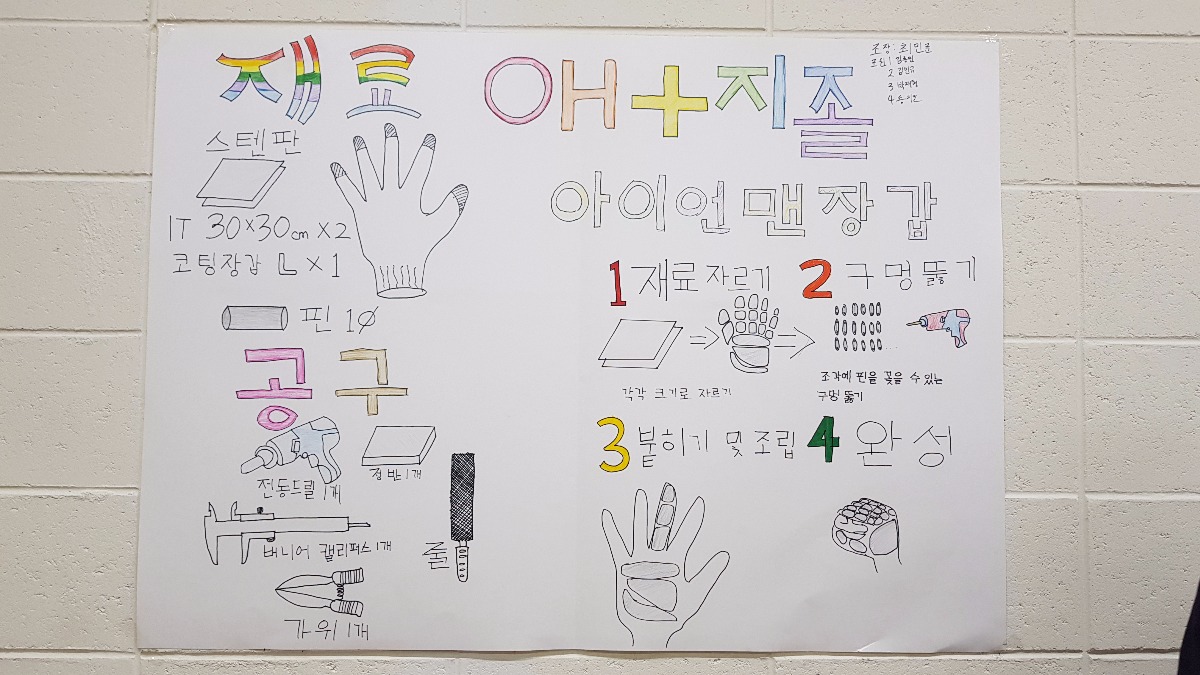 재료
스텐판
1T 30×30cm ×2
코팅장갑 L×1
핀 1∅
공구
전동드릴 1개
정반 1개
버니어 캘리퍼스 1개
줄
가위 1개
OH+지졸
조장:
조원 1
2
3
4
아이언맨장갑
1 재료 자르기
각각 크기로 자르기
2 구멍 뚫기
조각에 핀을 꽂을 수 있는
구멍 뚫기
3 붙히기 및 조립
4 완성